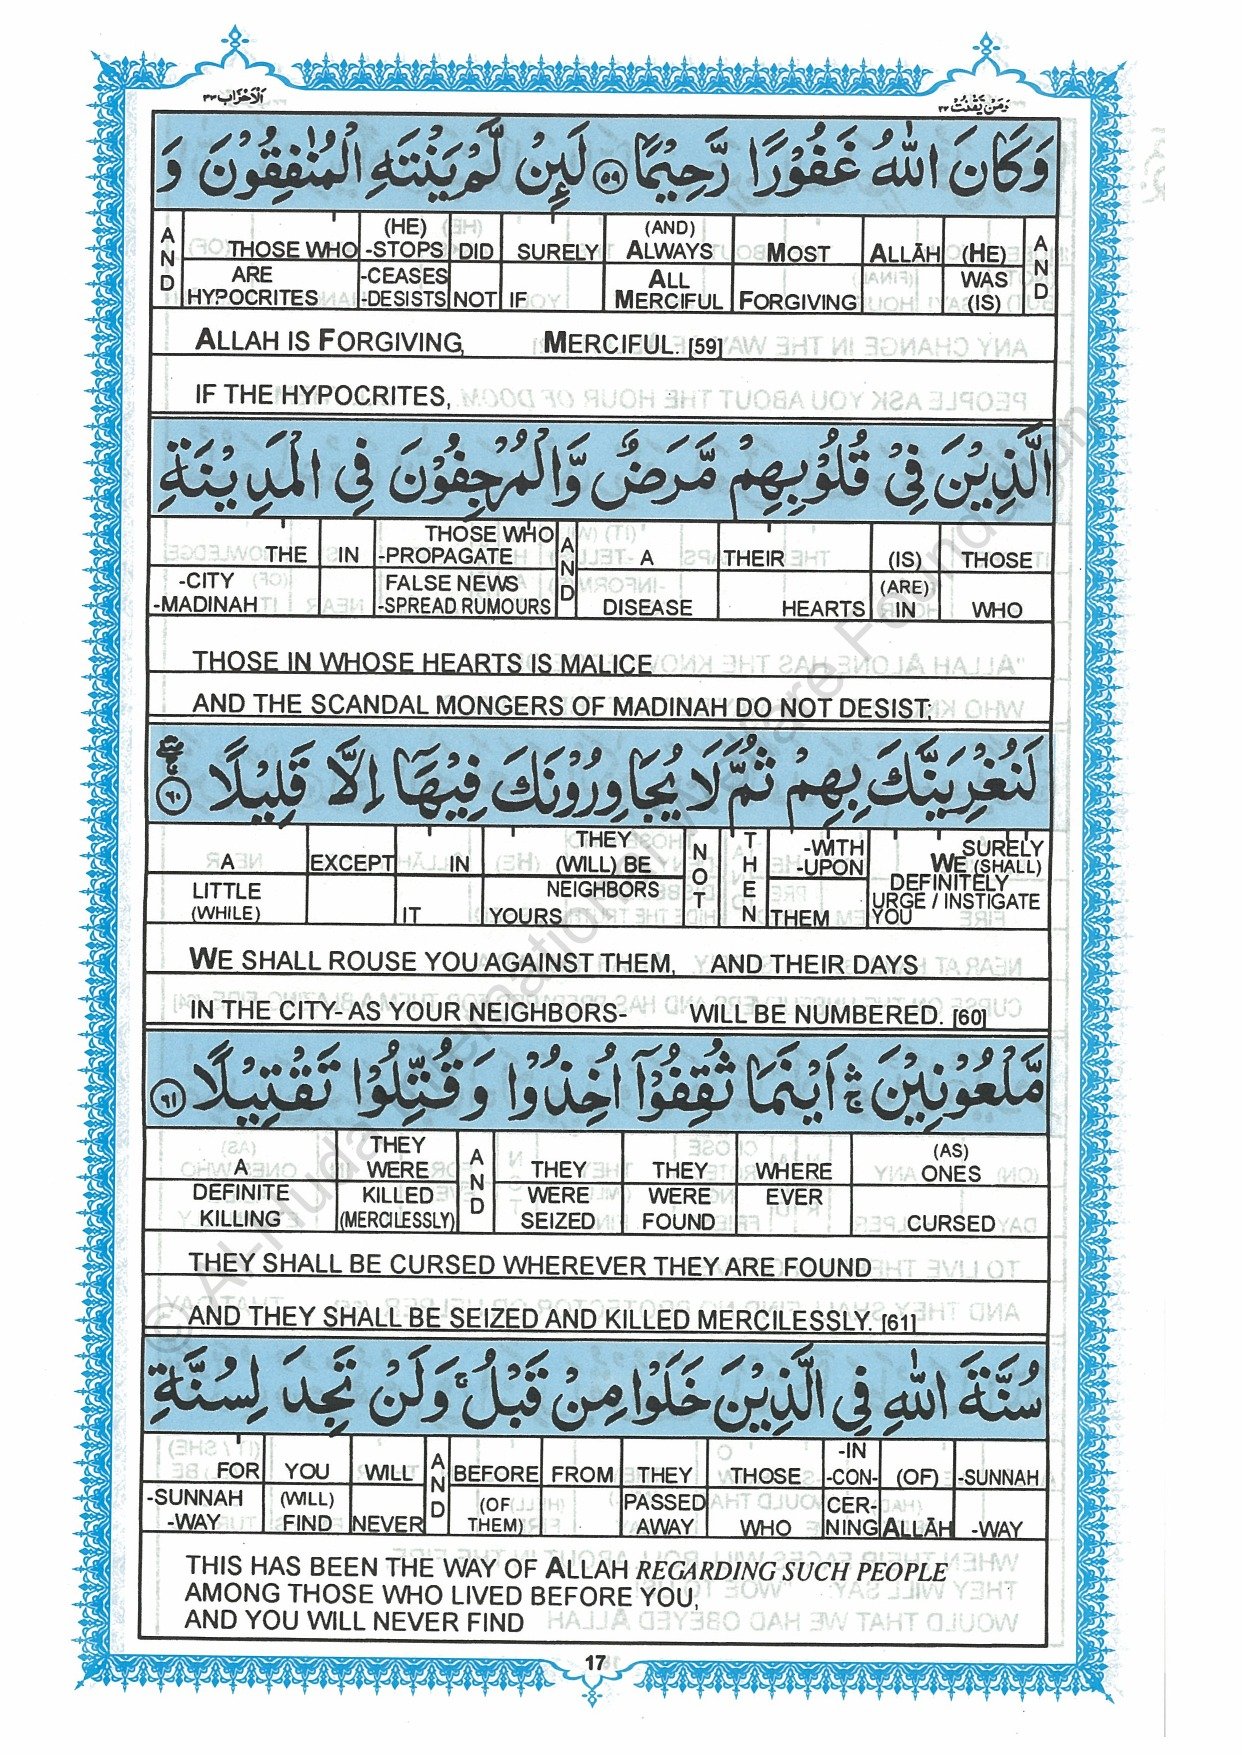 الاحزاب ٣٣
ومن يقنت ٢٢
وَكَانَ اللّٰهُ غَفُوْرًا رَّحِيْمًا ﴿٥٩﴾ لَىِٕنْ لَّمْ يَنْتَهِ الْمُنٰفِقُوْنَ وَ
AND | (HE) WAS (IS) | ALLĀH | MOST FORGIVING | (AND) ALWAYS ALL MERCIFUL | SURELY IF | DID NOT | (HE) -STOPS -CEASES -DESISTS | THOSE WHO ARE HYPOCRITES | AND
ALLAH IS FORGIVING, MERCIFUL. [59]
IF THE HYPOCRITES,
الَّذِيْنَ فِيْ قُلُوْبِهِمْ مَّرَضٌ وَّالْمُرْجِفُوْنَ فِي الْمَدِيْنَةِ
THOSE WHO | (IS) (ARE) IN | THEIR HEARTS | A DISEASE | AND | THOSE WHO -PROPAGATE FALSE NEWS -SPREAD RUMOURS | IN | THE -CITY -MADINAH
THOSE IN WHOSE HEARTS IS MALICE
AND THE SCANDAL MONGERS OF MADINAH DO NOT DESIST;
لَنُغْرِيَنَّكَ بِهِمْ ثُمَّ لَا يُجَاوِرُوْنَكَ فِيْهَآ اِلَّا قَلِيْلًا ﴿٦٠﴾
SURELY WE (SHALL) DEFINITELY URGE / INSTIGATE YOU | -WITH -UPON THEM | THEN | NOT | THEY (WILL) BE NEIGHBORS YOURS | IN IT | EXCEPT | A LITTLE (WHILE)
WE SHALL ROUSE YOU AGAINST THEM, AND THEIR DAYS
IN THE CITY- AS YOUR NEIGHBORS- WILL BE NUMBERED. [60]
مَّلْعُوْنِيْنَ ۛۚ اَيْنَمَا ثُقِفُوْٓا اُخِذُوْا وَقُتِّلُوْا تَقْتِيْلًا ﴿٦١﴾
(AS) ONES CURSED | WHERE EVER | THEY WERE FOUND | THEY WERE SEIZED | AND | THEY WERE KILLED (MERCILESSLY) | A DEFINITE KILLING
THEY SHALL BE CURSED WHEREVER THEY ARE FOUND
AND THEY SHALL BE SEIZED AND KILLED MERCILESSLY. [61]
سُنَّةَ اللّٰهِ فِي الَّذِيْنَ خَلَوْا مِنْ قَبْلُ ۚ وَلَنْ تَجِدَ لِسُنَّةِ
-SUNNAH -WAY | (OF) ALLĀH | -IN -CON- CER- NING | THOSE WHO | THEY PASSED AWAY | FROM | BEFORE (OF THEM) | AND | WILL NEVER | YOU (WILL) FIND | FOR -SUNNAH -WAY
THIS HAS BEEN THE WAY OF ALLAH REGARDING SUCH PEOPLE
AMONG THOSE WHO LIVED BEFORE YOU,
AND YOU WILL NEVER FIND
17
© Al-Huda International Welfare Foundation